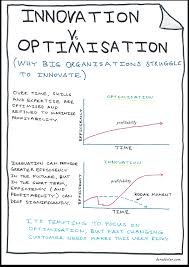 INNOVATION
Vs.
OPTIMISATION
(WHY BIG ORGANISATIONS STRUGGLE
TO INNOVATE)
OVER TIME, SKILLS
AND EXPERTISE ARE
OPTIMISED AND
REFINED TO MAXIMISE
PROFITABILITY.
OPTIMISATION
EFFICIENCY
profitability
TIME
INNOVATION CAN
GREATER EFFICIENCY
IN THE FUTURE, BUT IN
THE SHORT TERM,
EFFICIENCY ( AND
PROFITABILITY ) CAN
DROP SIGNIFICANTLY.
INNOVATION
EFFICIENCY
profitability
KODAK MOMENT
TIME
ITS TEMPTING TO FOCUS ON
OPTIMISATION, BUT FAST CHANGING
CUSTOMER NEEDS MAKES THIS VERY RISKY